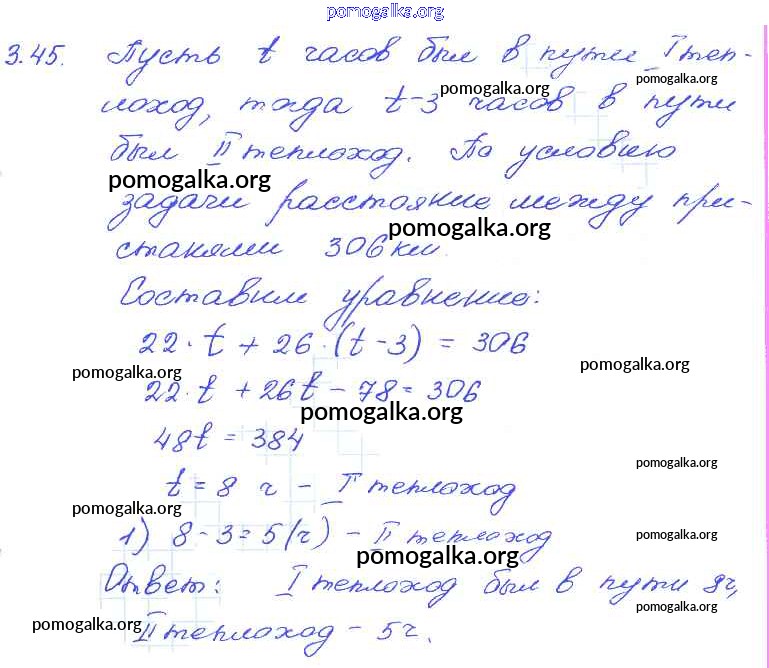 pomogalka.org
3.45. Пусть t часов был в пути I теп-
pomogalka.org
pomogalka.org
лоход, тогда t-3 часов в пути
был II теплоход. По условию
pomogalka.org
задачи расстояние между при-
pomogalka.org
станями 306 км.
Составим уравнение:
22 · t + 26 · (t - 3) = 306
pomogalka.org
pomogalka.org
22 · t + 26t - 78 = 306
pomogalka.org
48t = 384
pomogalka.org
t = 8 ч - I теплоход
pomogalka.org
1) 8 - 3 = 5 (ч) - II теплоход
pomogalka.org
pomogalka.org
Ответ: I теплоход был в пути 8ч,
pomogalka.org
II теплоход - 5ч.
pomogalka.org